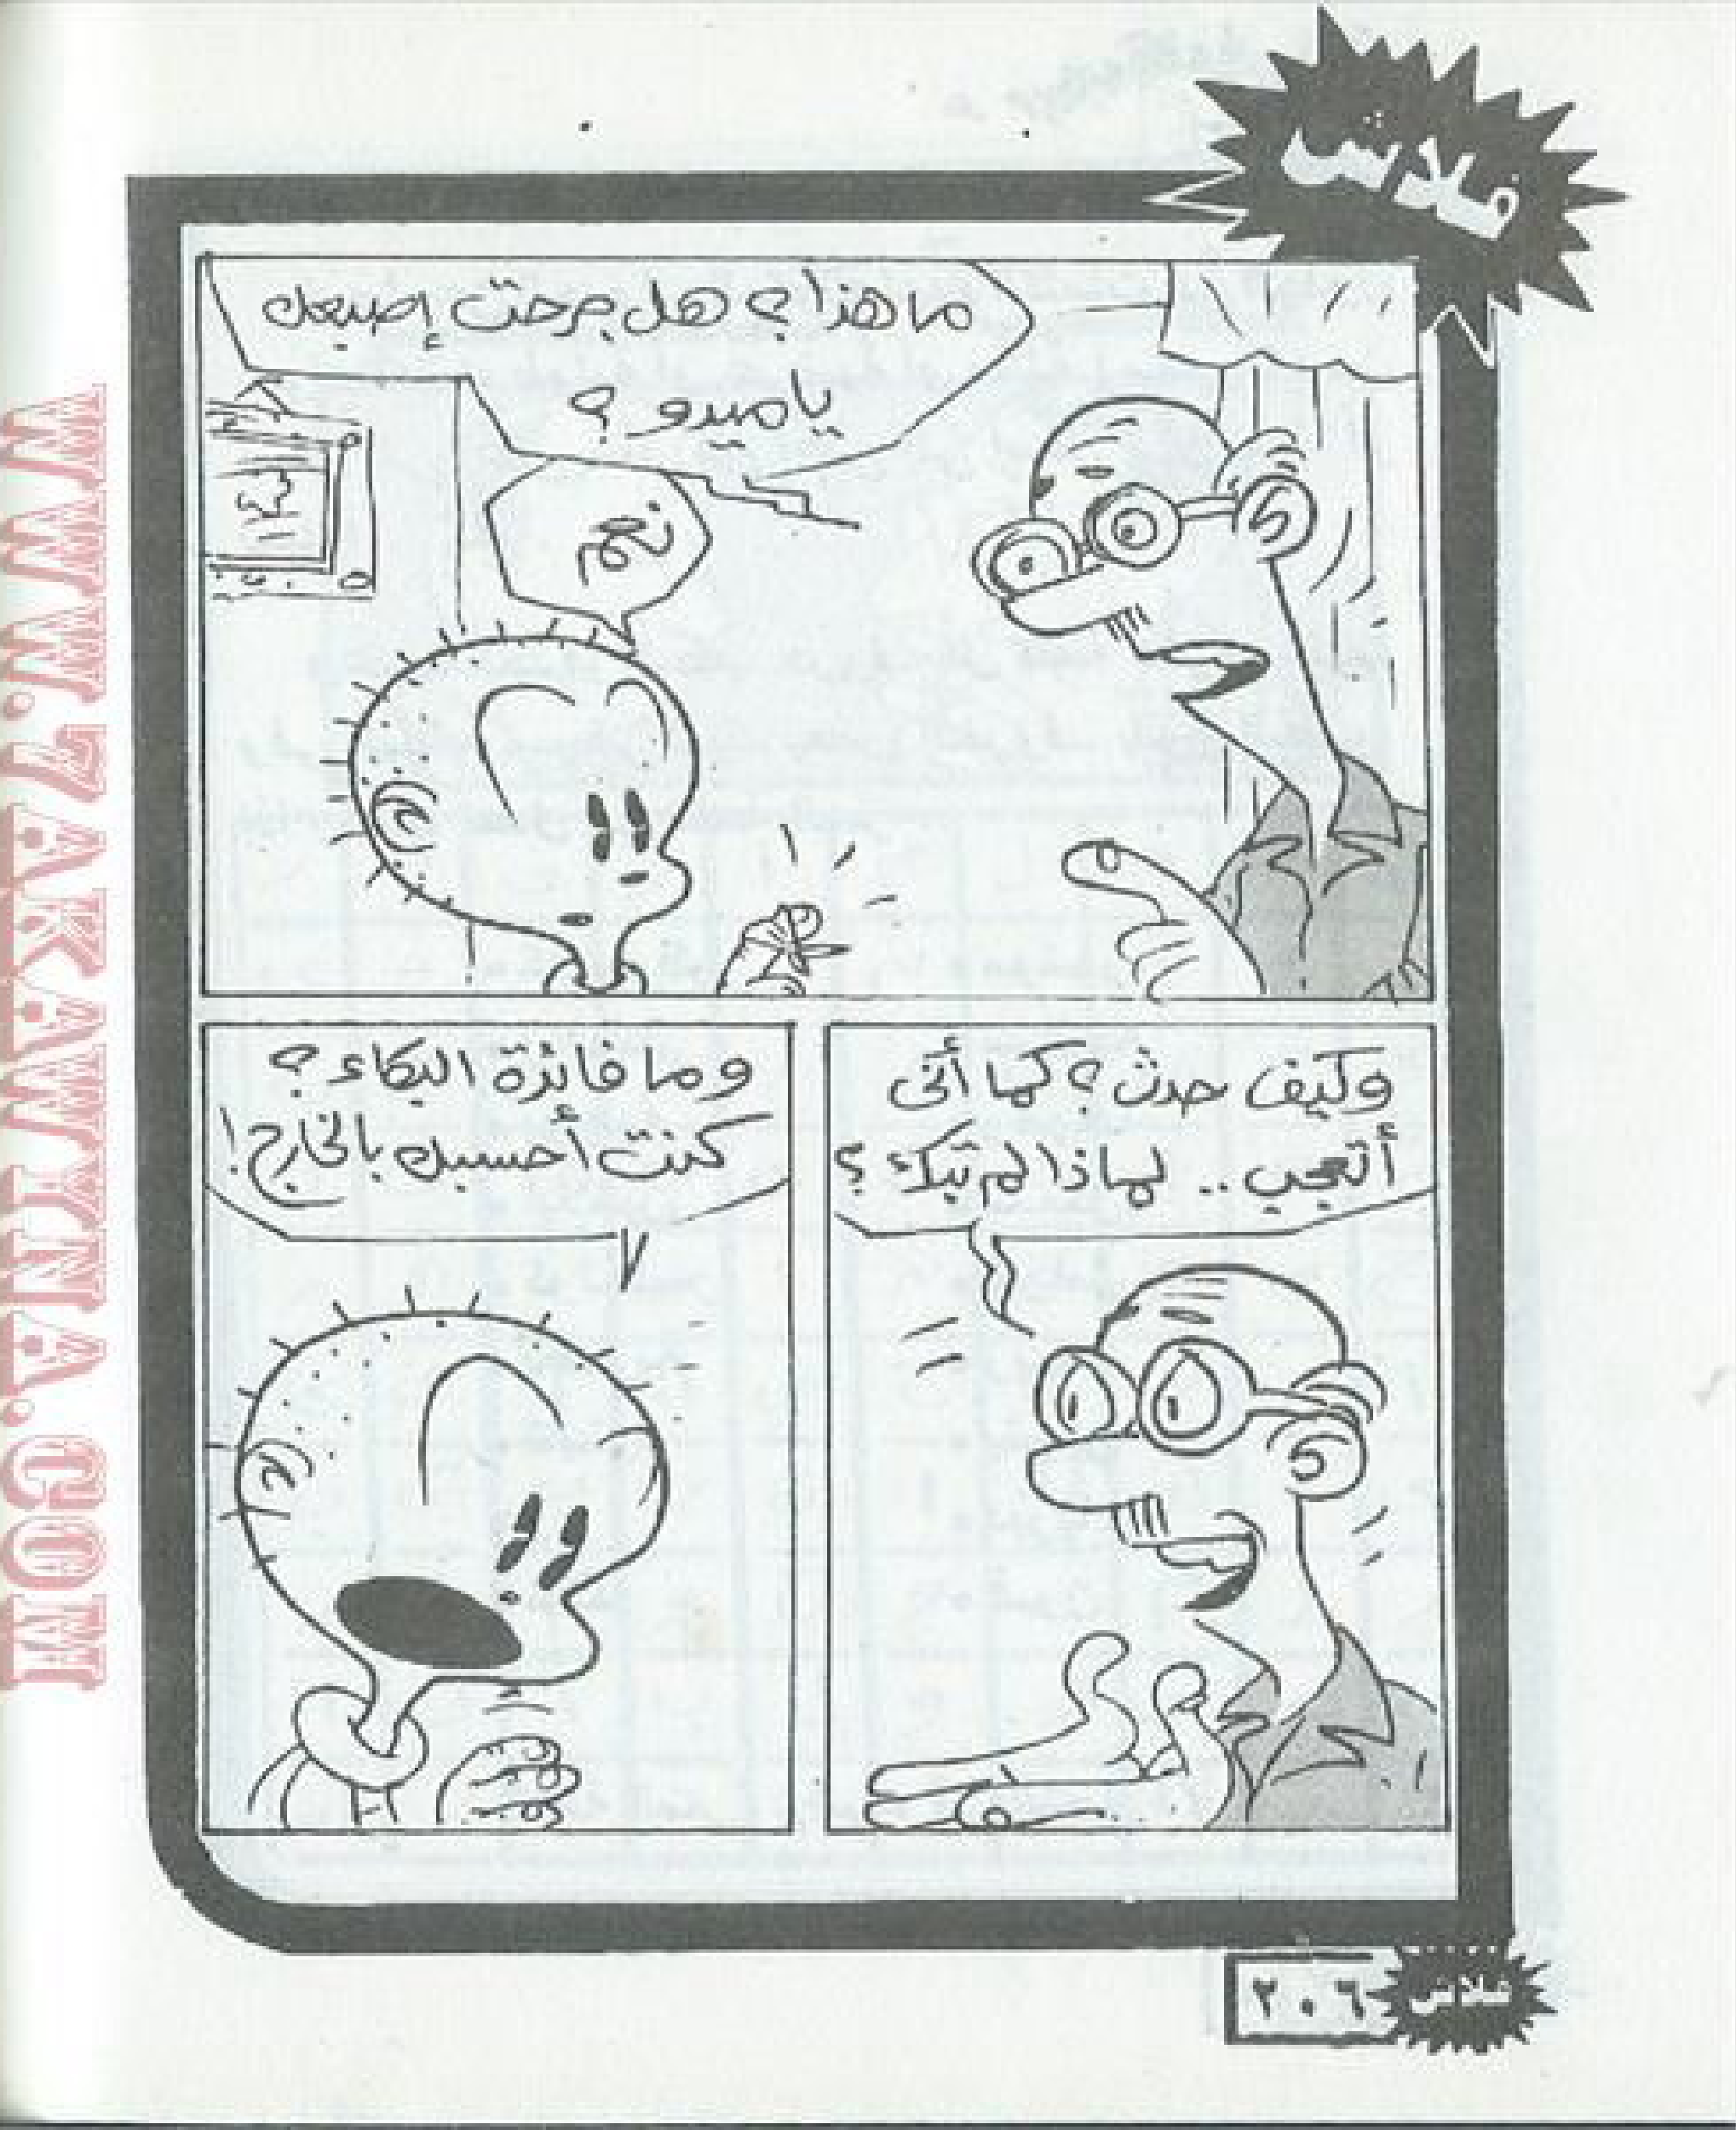 فلاش
ما هذا؟ هل جرحت إصبعك
يا ميدو؟
نعم
وكيف حدث؟ كما أنى
أتعجب .. لماذا لم تبك؟
وما فائدة البكاء؟
كنت أحسبك بالخارج!
WWW.ZAKAWTNA.COM
٢٠٦
فلاش